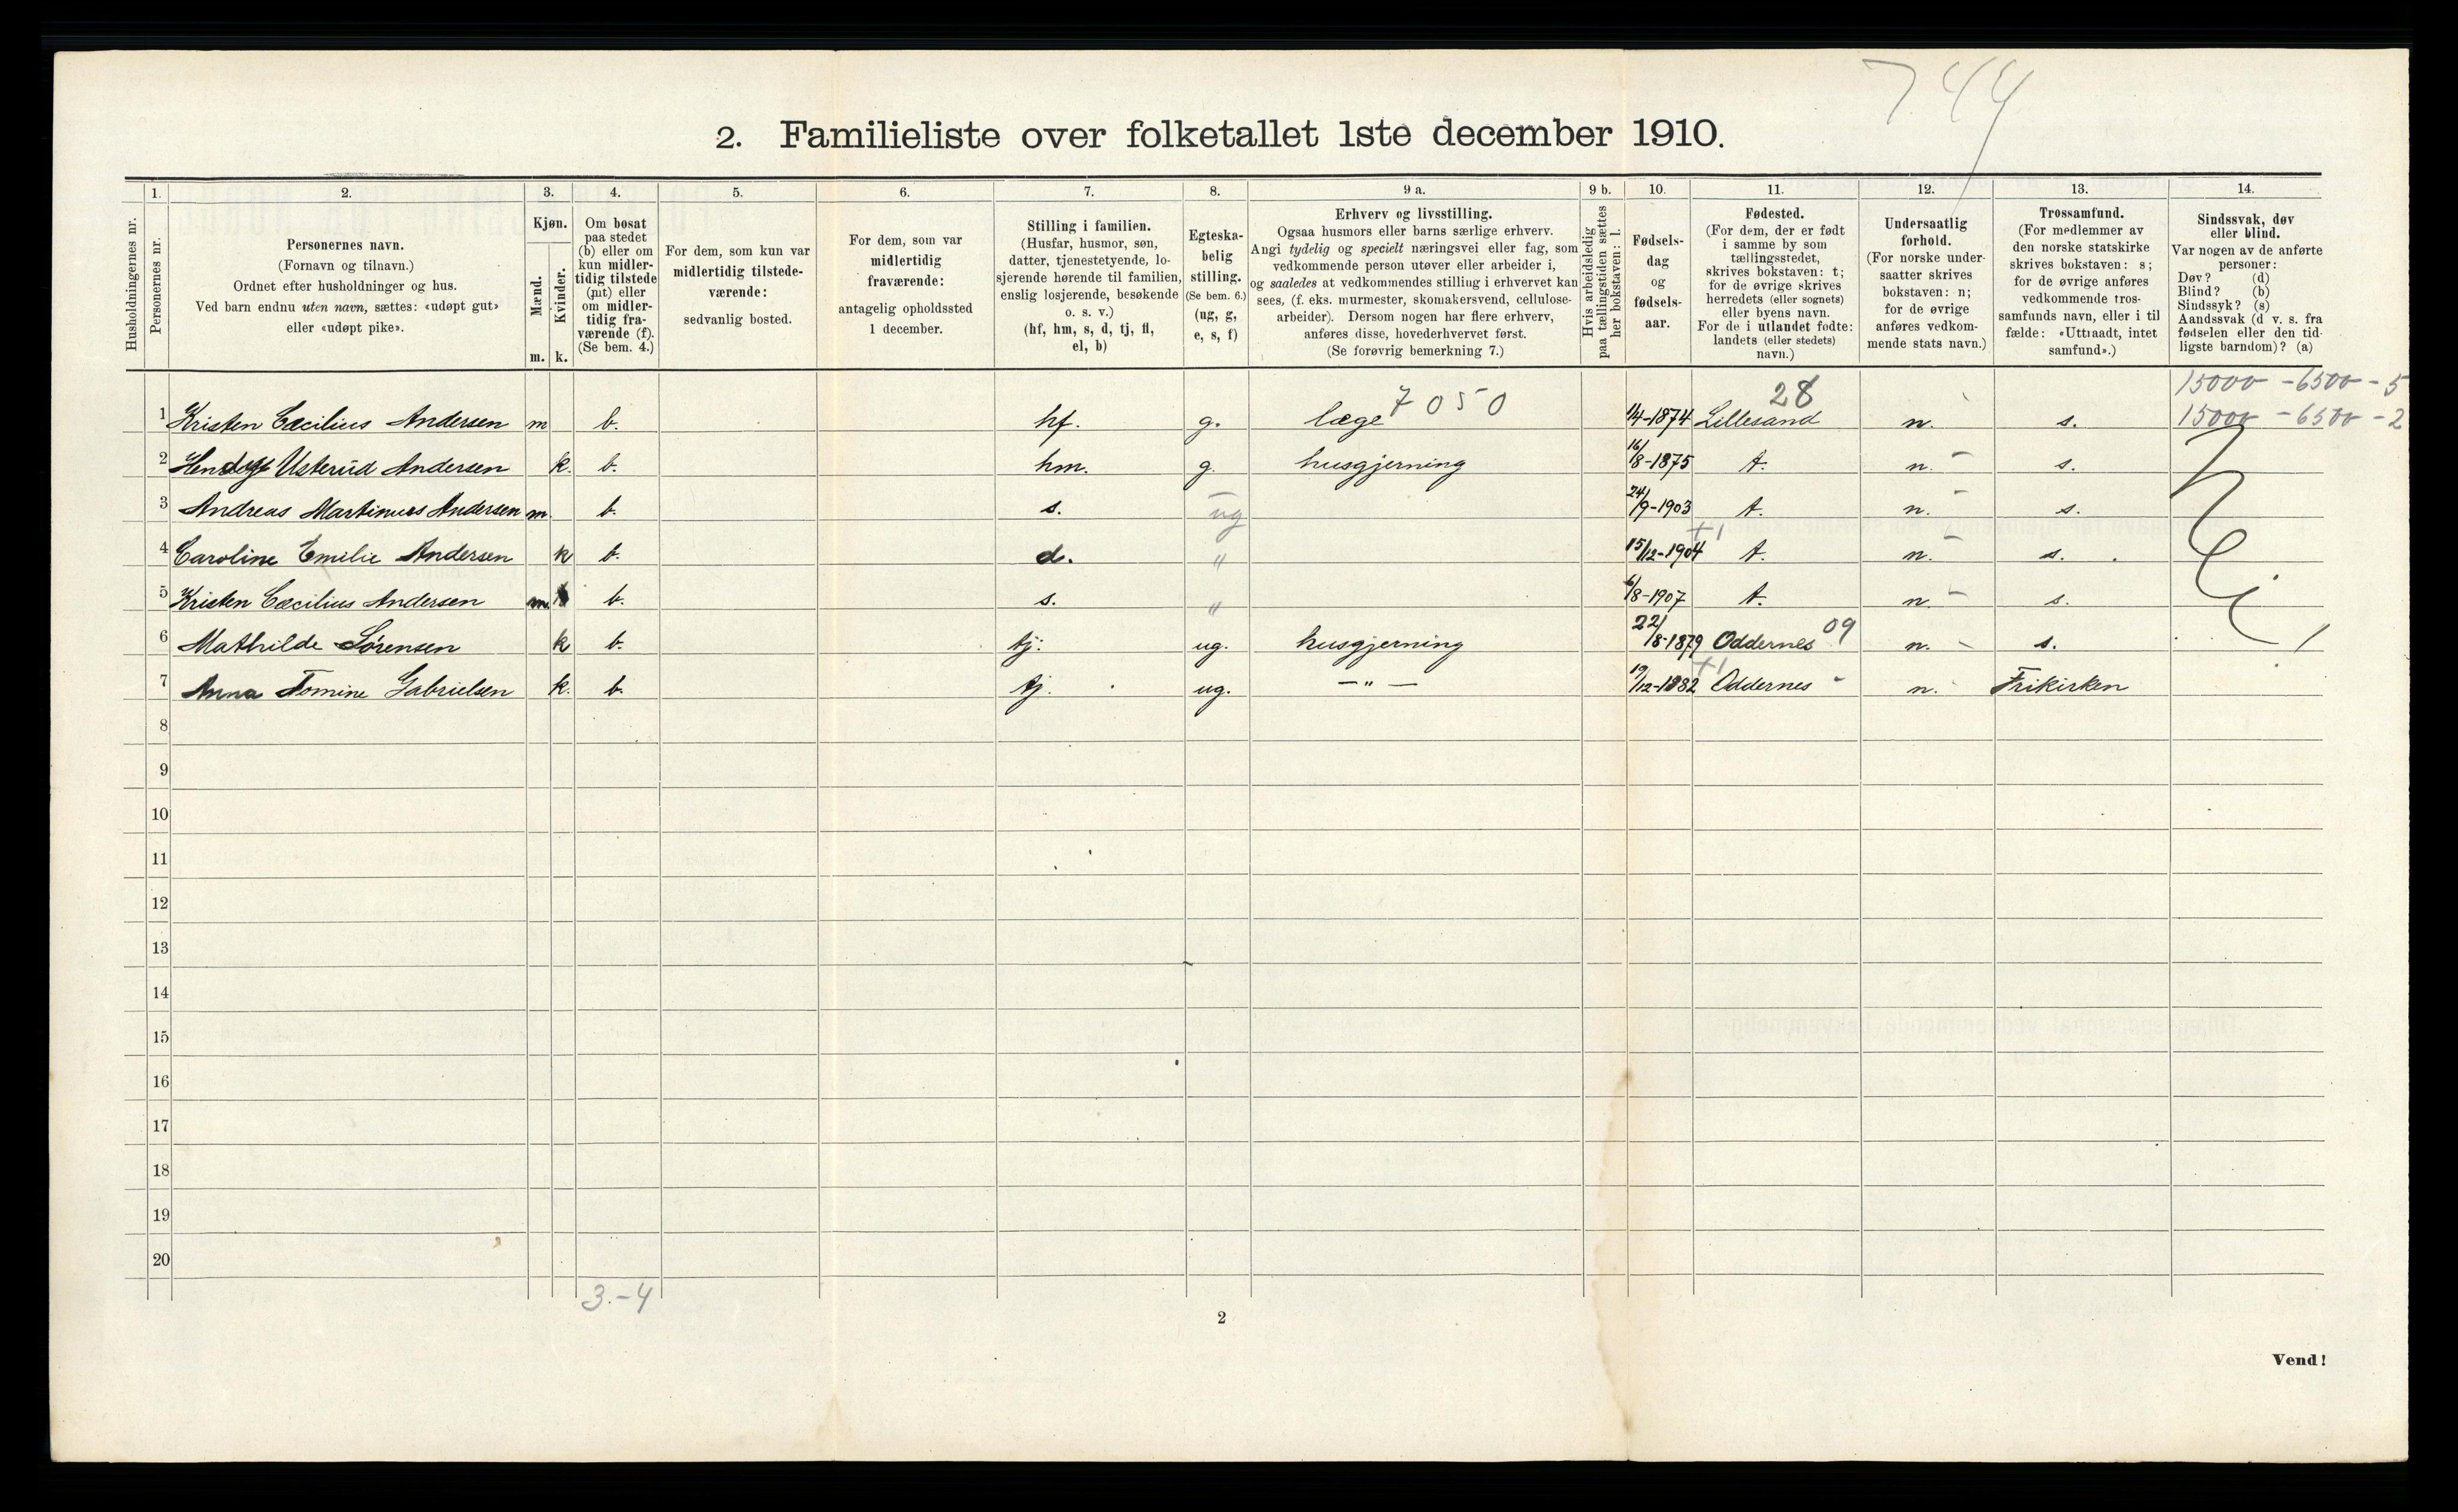 744
2. Familieliste over folketallet 1ste december 1910.
Husholdningernes nr.
1. Personernes nr.
2. Personernes navn. (Fornavn og tilnavn.) Ordnet efter husholdninger og hus. Ved barn endnu uten navn, sættes: «udøpt gut» eller «udøpt pike».
3. Kjøn. Mænd. m. Kvinder. k.
4. Om bosat paa stedet (b) eller om kun midlertidig tilstede (mt) eller om midlertidig fraværende (f). (Se bem. 4.)
5. For dem, som kun var midlertidig tilstedeværende: sedvanlig bosted.
6. For dem, som var midlertidig fraværende: antagelig opholdssted 1 december.
7. Stilling i familien. (Husfar, husmor, søn, datter, tjenestetyende, losjerende hørende til familien, enslig losjerende, besøkende o. s. v.) (hf, hm, s, d, tj, fl, el, b)
8. Egteskabelig stilling. (Se bem. 6.) (ug, g, e, s, f)
9 a. Erhverv og livsstilling. Ogsaa husmors eller barns særlige erhverv. Angi tydelig og specielt næringsvei eller fag, som vedkommende person utøver eller arbeider i, og saaledes at vedkommendes stilling i erhvervet kan sees, (f. eks. murmester, skomakersvend, cellulosearbeider). Dersom nogen har flere erhverv, anføres disse, hovederhvervet først. (Se forøvrig bemerkning 7.)
9 b. Hvis arbeidsledig paa tællingstiden sættes her bokstaven: l.
10. Fødselsdag og fødselsaar.
11. Fødested. (For dem, der er født i samme by som tællingsstedet, skrives bokstaven: t; for de øvrige skrives herredets (eller sognets) eller byens navn. For de i utlandet fødte: landets (eller stedets) navn.)
12. Undersaatlig forhold. (For norske undersaatter skrives bokstaven: n; for de øvrige anføres vedkommende stats navn.)
13. Trossamfund. (For medlemmer av den norske statskirke skrives bokstaven: s; for de øvrige anføres vedkommende trossamfunds navn, eller i tilfælde: «Uttraadt, intet samfund».)
14. Sindssvak, døv eller blind. Var nogen av de anførte personer: Døv? (d) Blind? (b) Sindssyk? (s) Aandssvak (d v. s. fra fødselen eller den tidligste barndom)? (a)
15000 - 6500 - 5
7050 28
1 Kristen Cæcilius Andersen m b. hf. g. læge 1/4-1874 Lillesand n. s. 15000 - 6500 - 2
2 Usterud Andersen k. b. hm. g. husgjerning 16/8-1875 t. n. s.
3 Andreas Martinius Andersen m. b. s. ug 24/9-1903 t. n. s.
4 Caroline Emilie Andersen k b. d. " 15/12-1904 +1 t. n. s.
5 Kristen Cæcilius Andersen m. b. s. " 6/8-1907 t. n. s.
6 Mathilde Sørensen k b. tj. ug. husgjerning 22/8-1879 Oddernes 09 n. s.
7 Anna Tomine Gabrielsen k. b. tj. ug. —"— 19/12-1882 +1 Oddernes n. Frikirken
Nei
8
9
10
11
12
13
14
15
16
17
18
19
20
3.-4
2
Vend!